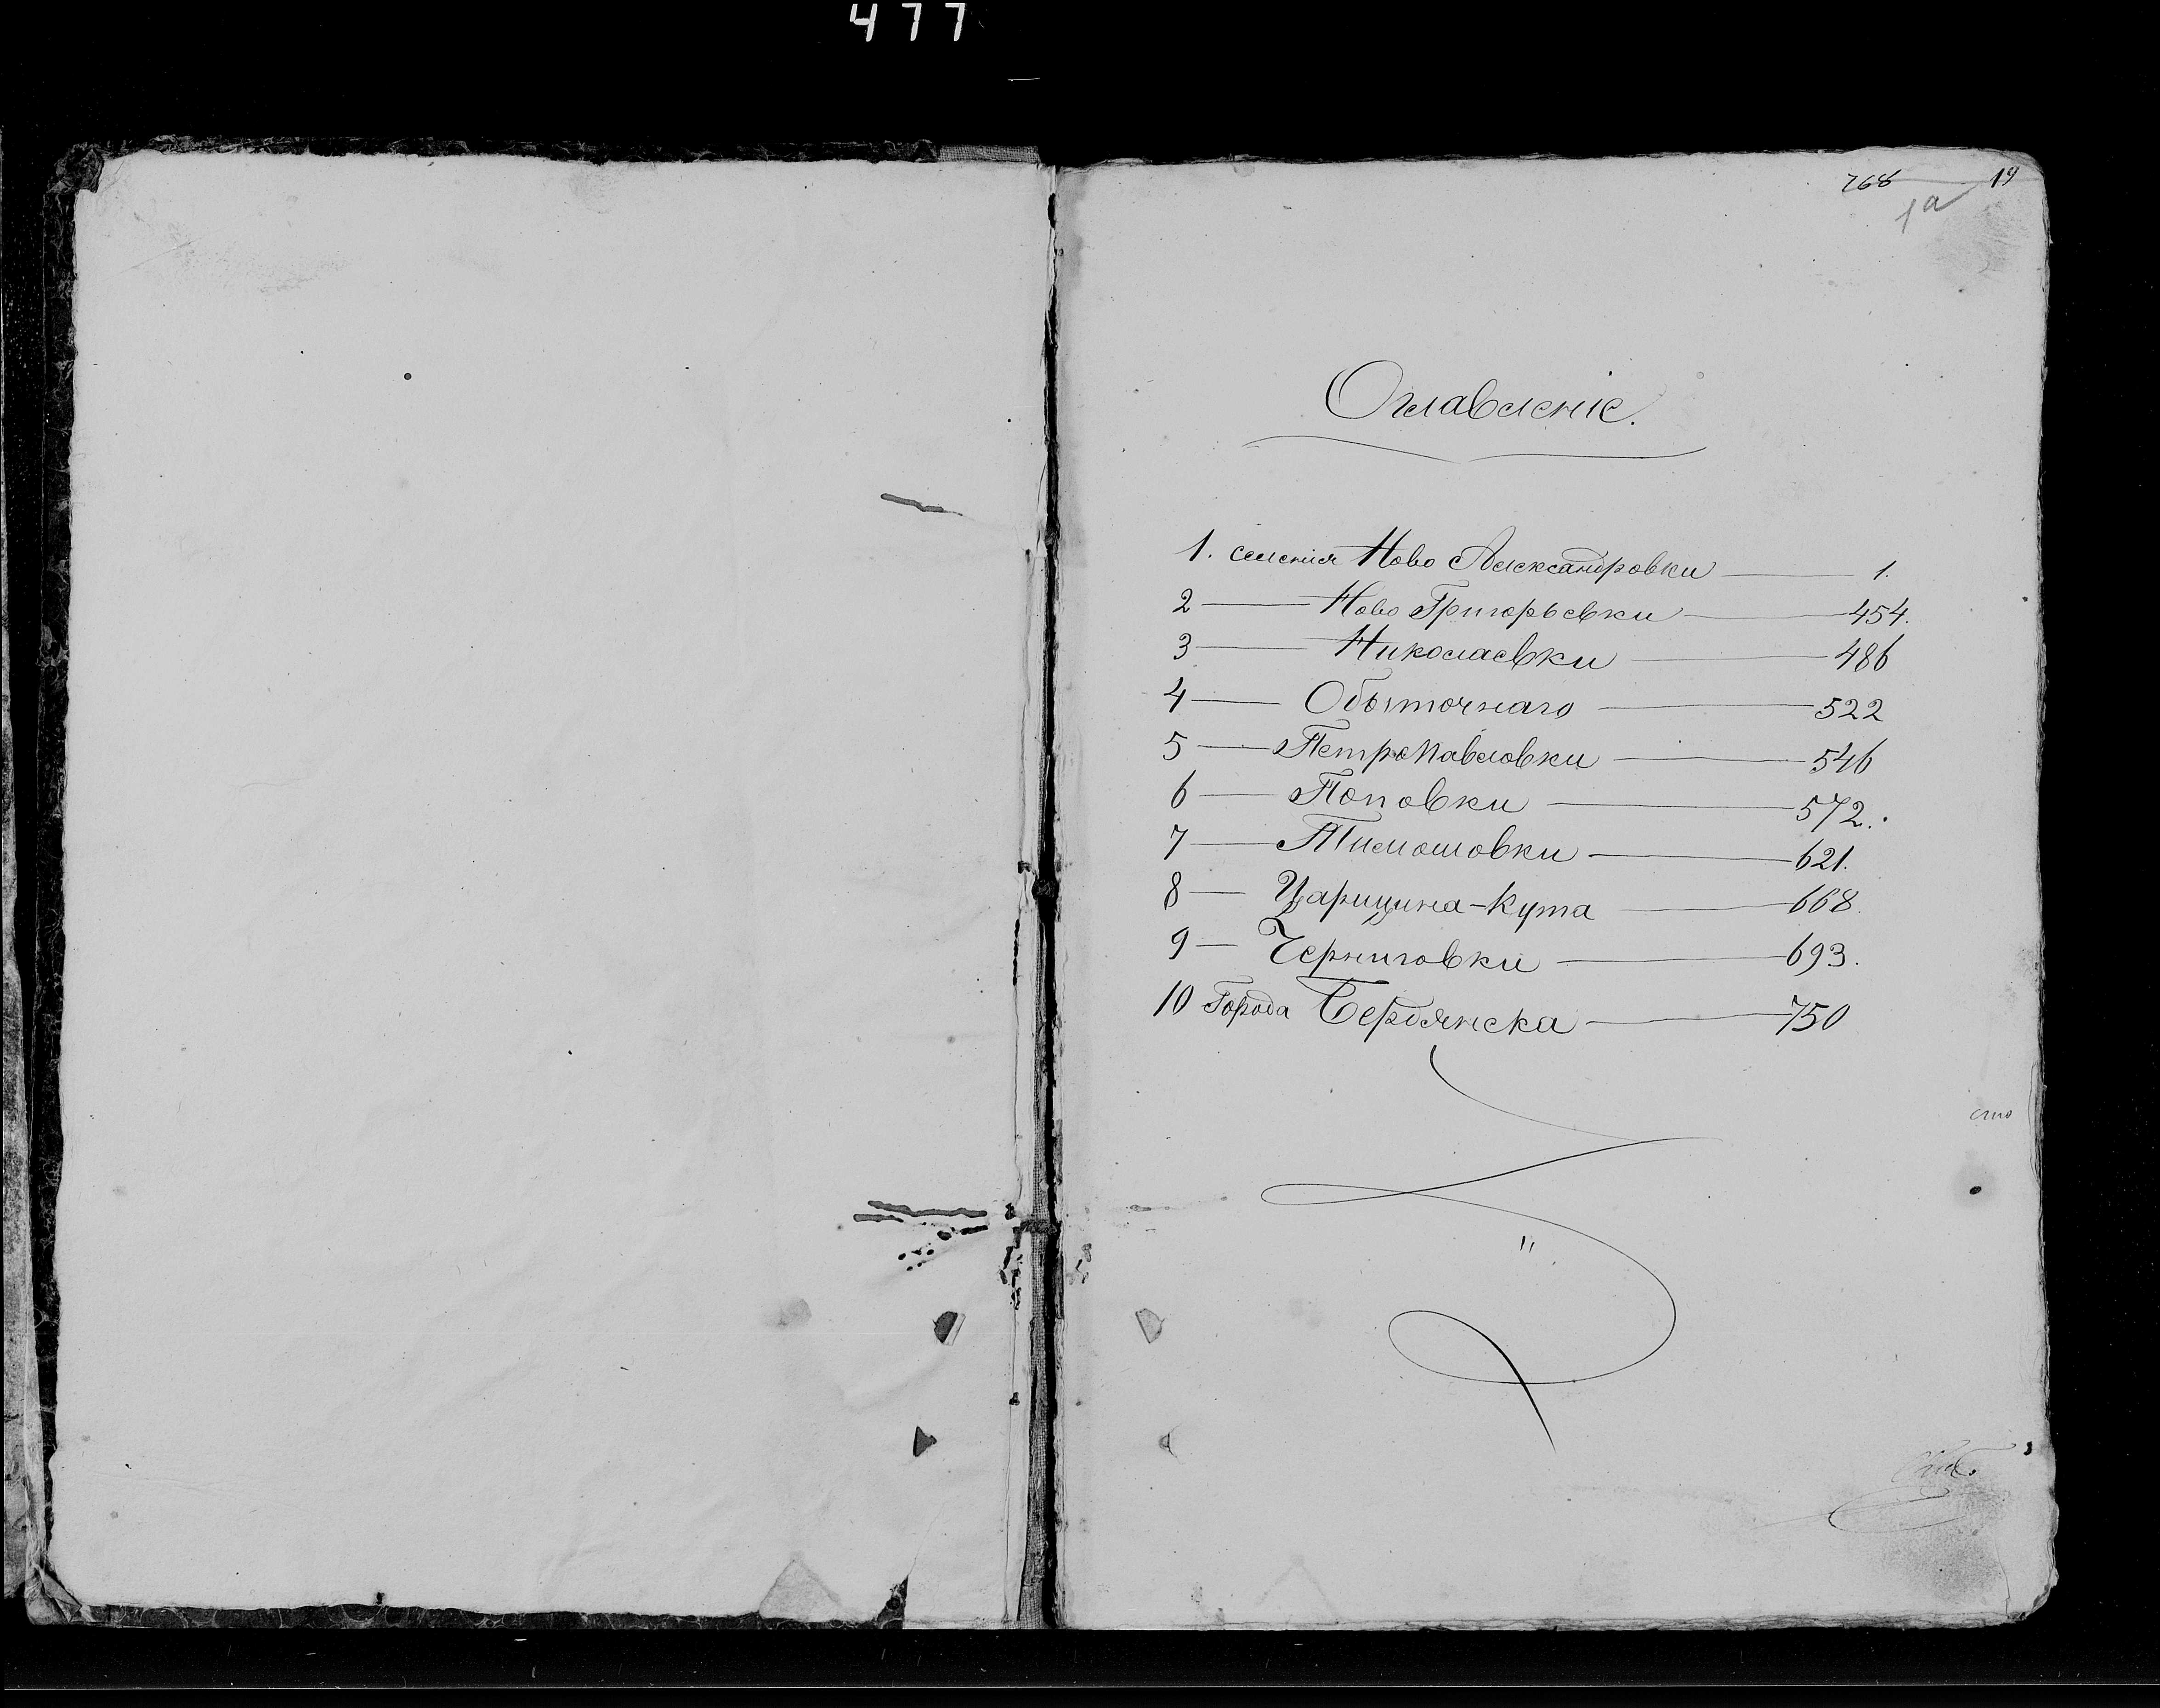 477
768 — 19
1а
Оглавленіе.
1. селенія Ново Александровки — 1.
2 — Ново Григорьевки — 454.
3 — Николаевки — 486
4 — Обыточнаго — 522
5 — ПетроПавловки — 546
6 — Поповки — 572.
7 — Тимошовки — 621.
8 — Царицина-Кута — 668.
9 — Черниговки — 693.
10 Города Бердянска — 750
"